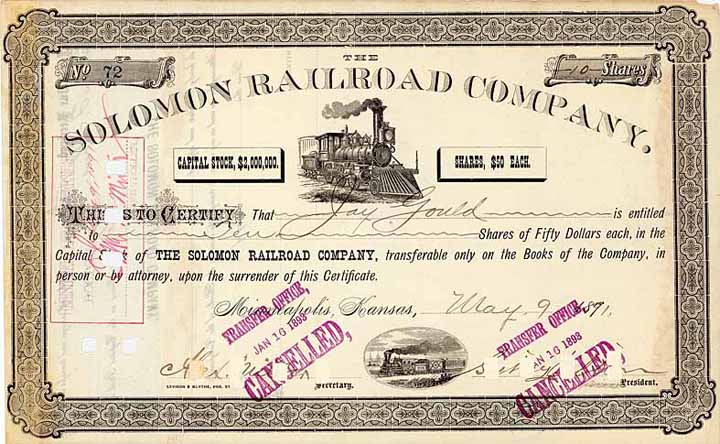 No 72
10 Shares
THE
SOLOMON RAILROAD COMPANY.
CAPITAL STOCK, $2,000,000.
SHARES, $50 EACH.
THIS IS TO CERTIFY That Jay Gould is entitled
to Ten Shares of Fifty Dollars each, in the
Capital of THE SOLOMON RAILROAD COMPANY, transferable only on the Books of the Company, in
person or by attorney, upon the surrender of this Certificate.
Minneapolis, Kansas, May 9 1891
TRANSFER OFFICE,
JAN 16 1898
CANCELLED,
TRANSFER OFFICE
JAN 16 1898
CANCELLED,
LEVISON & BLYTHE, PRS. ST.
Secretary.
President.